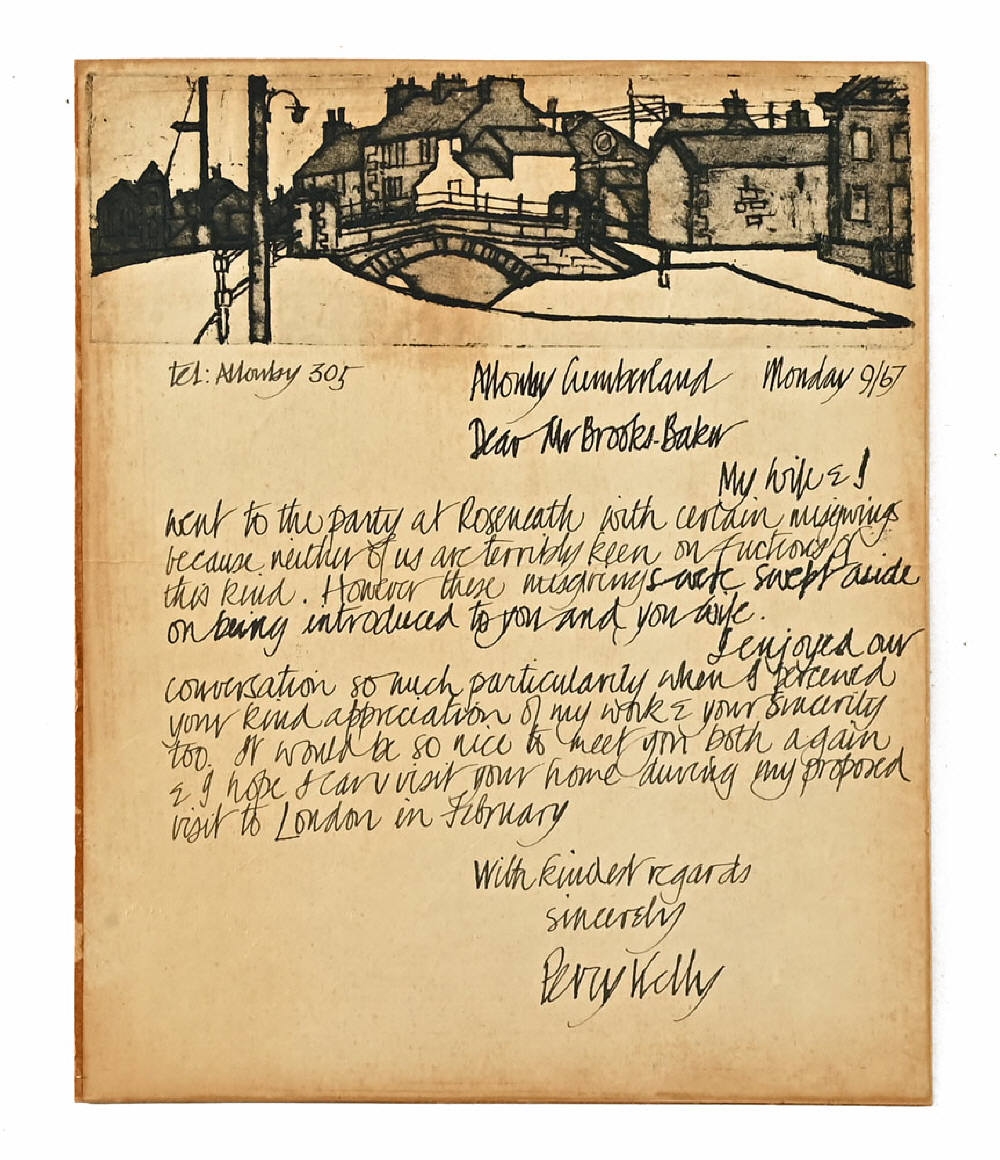 tel: Allonby 305
Allonby Cumberland Monday 9/67
Dear Mr Brooks-Baker
My wife & I
went to the party at Roseneath with certain misgivings
because neither of us are terribly keen on functions of
this kind. However these misgivings were swept aside
on being introduced to you and you wife.
I enjoyed our
conversation so much particularly when I perceived
your kind appreciation of my work & your sincerity
too. It would be so nice to meet you both again
& I hope I can visit your home during my proposed
visit to London in February
With kindest regards
sincerely
Percy Kelly